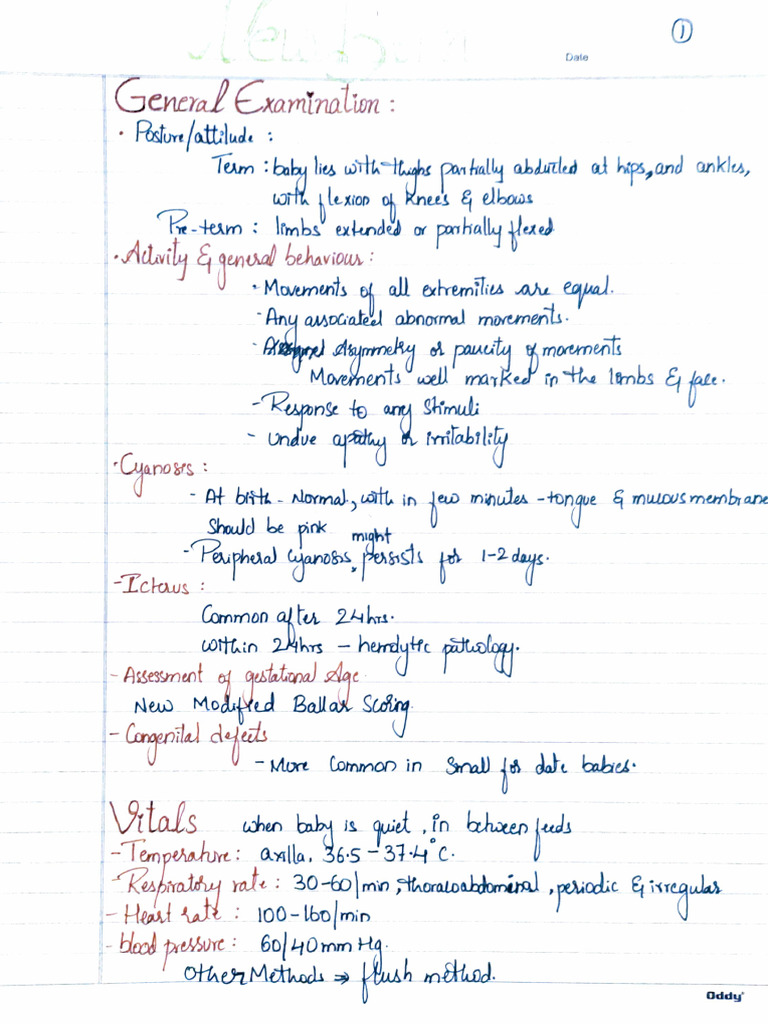 New Born
1
Date
General Examination :
• Posture/attitude :
Term : baby lies with thighs partially abducted at hips, and ankles,
with flexion of knees & elbows
Pre-term : limbs extended or partially flexed
• Activity & general behaviour :
• Movements of all extremities are equal.
- Any associated abnormal movements.
- Asymmetry or paucity of movements
Movements well marked in the limbs & face.
- Response to any stimuli
- undue apathy or irritability
• Cyanosis :
- At birth - Normal, with in few minutes - tongue & mucous membrane
should be pink
- Peripheral cyanosis might persists for 1-2 days.
- Icterus :
Common after 24hrs.
within 24hrs – hemolytic pathology.
- Assessment of gestational Age
New Modified Ballar Scoring.
- Congenital defects
- More Common in Small for date babies.
Vitals when baby is quiet, in between feeds
- Temperature : axilla, 36.5 – 37.4°C.
- Respiratory rate : 30-60/min, thoracoabdominal, periodic & irregular
- Heart rate : 100-160/min
- blood pressure : 60/40 mm Hg.
Other Methods ⇒ flush method.
Oddy